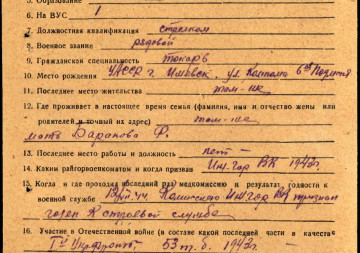 5. Образование
6. На ВУС 1
7. Должностная квалификация стрелком
8. Военное звание рядовой
9. Гражданская специальность токарь
10. Место рождения УАССР г. Ижевск, ул.
11. Последнее место жительства там-же
12. Где проживает в настоящее время семья (фамилия, имя и отчество жены или
родителей и точный их адрес) там-же
мать Баранова Ф.
13. Последнее место работы и должность нет —
14. Каким райгорвоенкоматом и когда призван Иж. Гор ВК 1942г.
15. Когда и где проходил последний раз медкомиссию и результат годности к
военной службе Комиссией ИжГор признан
годен к строевой службе
16. Участие в Отечественной войне (в составе какой последней части в качестве
1й Укр. фронт, 53 т. б. 1942г. —